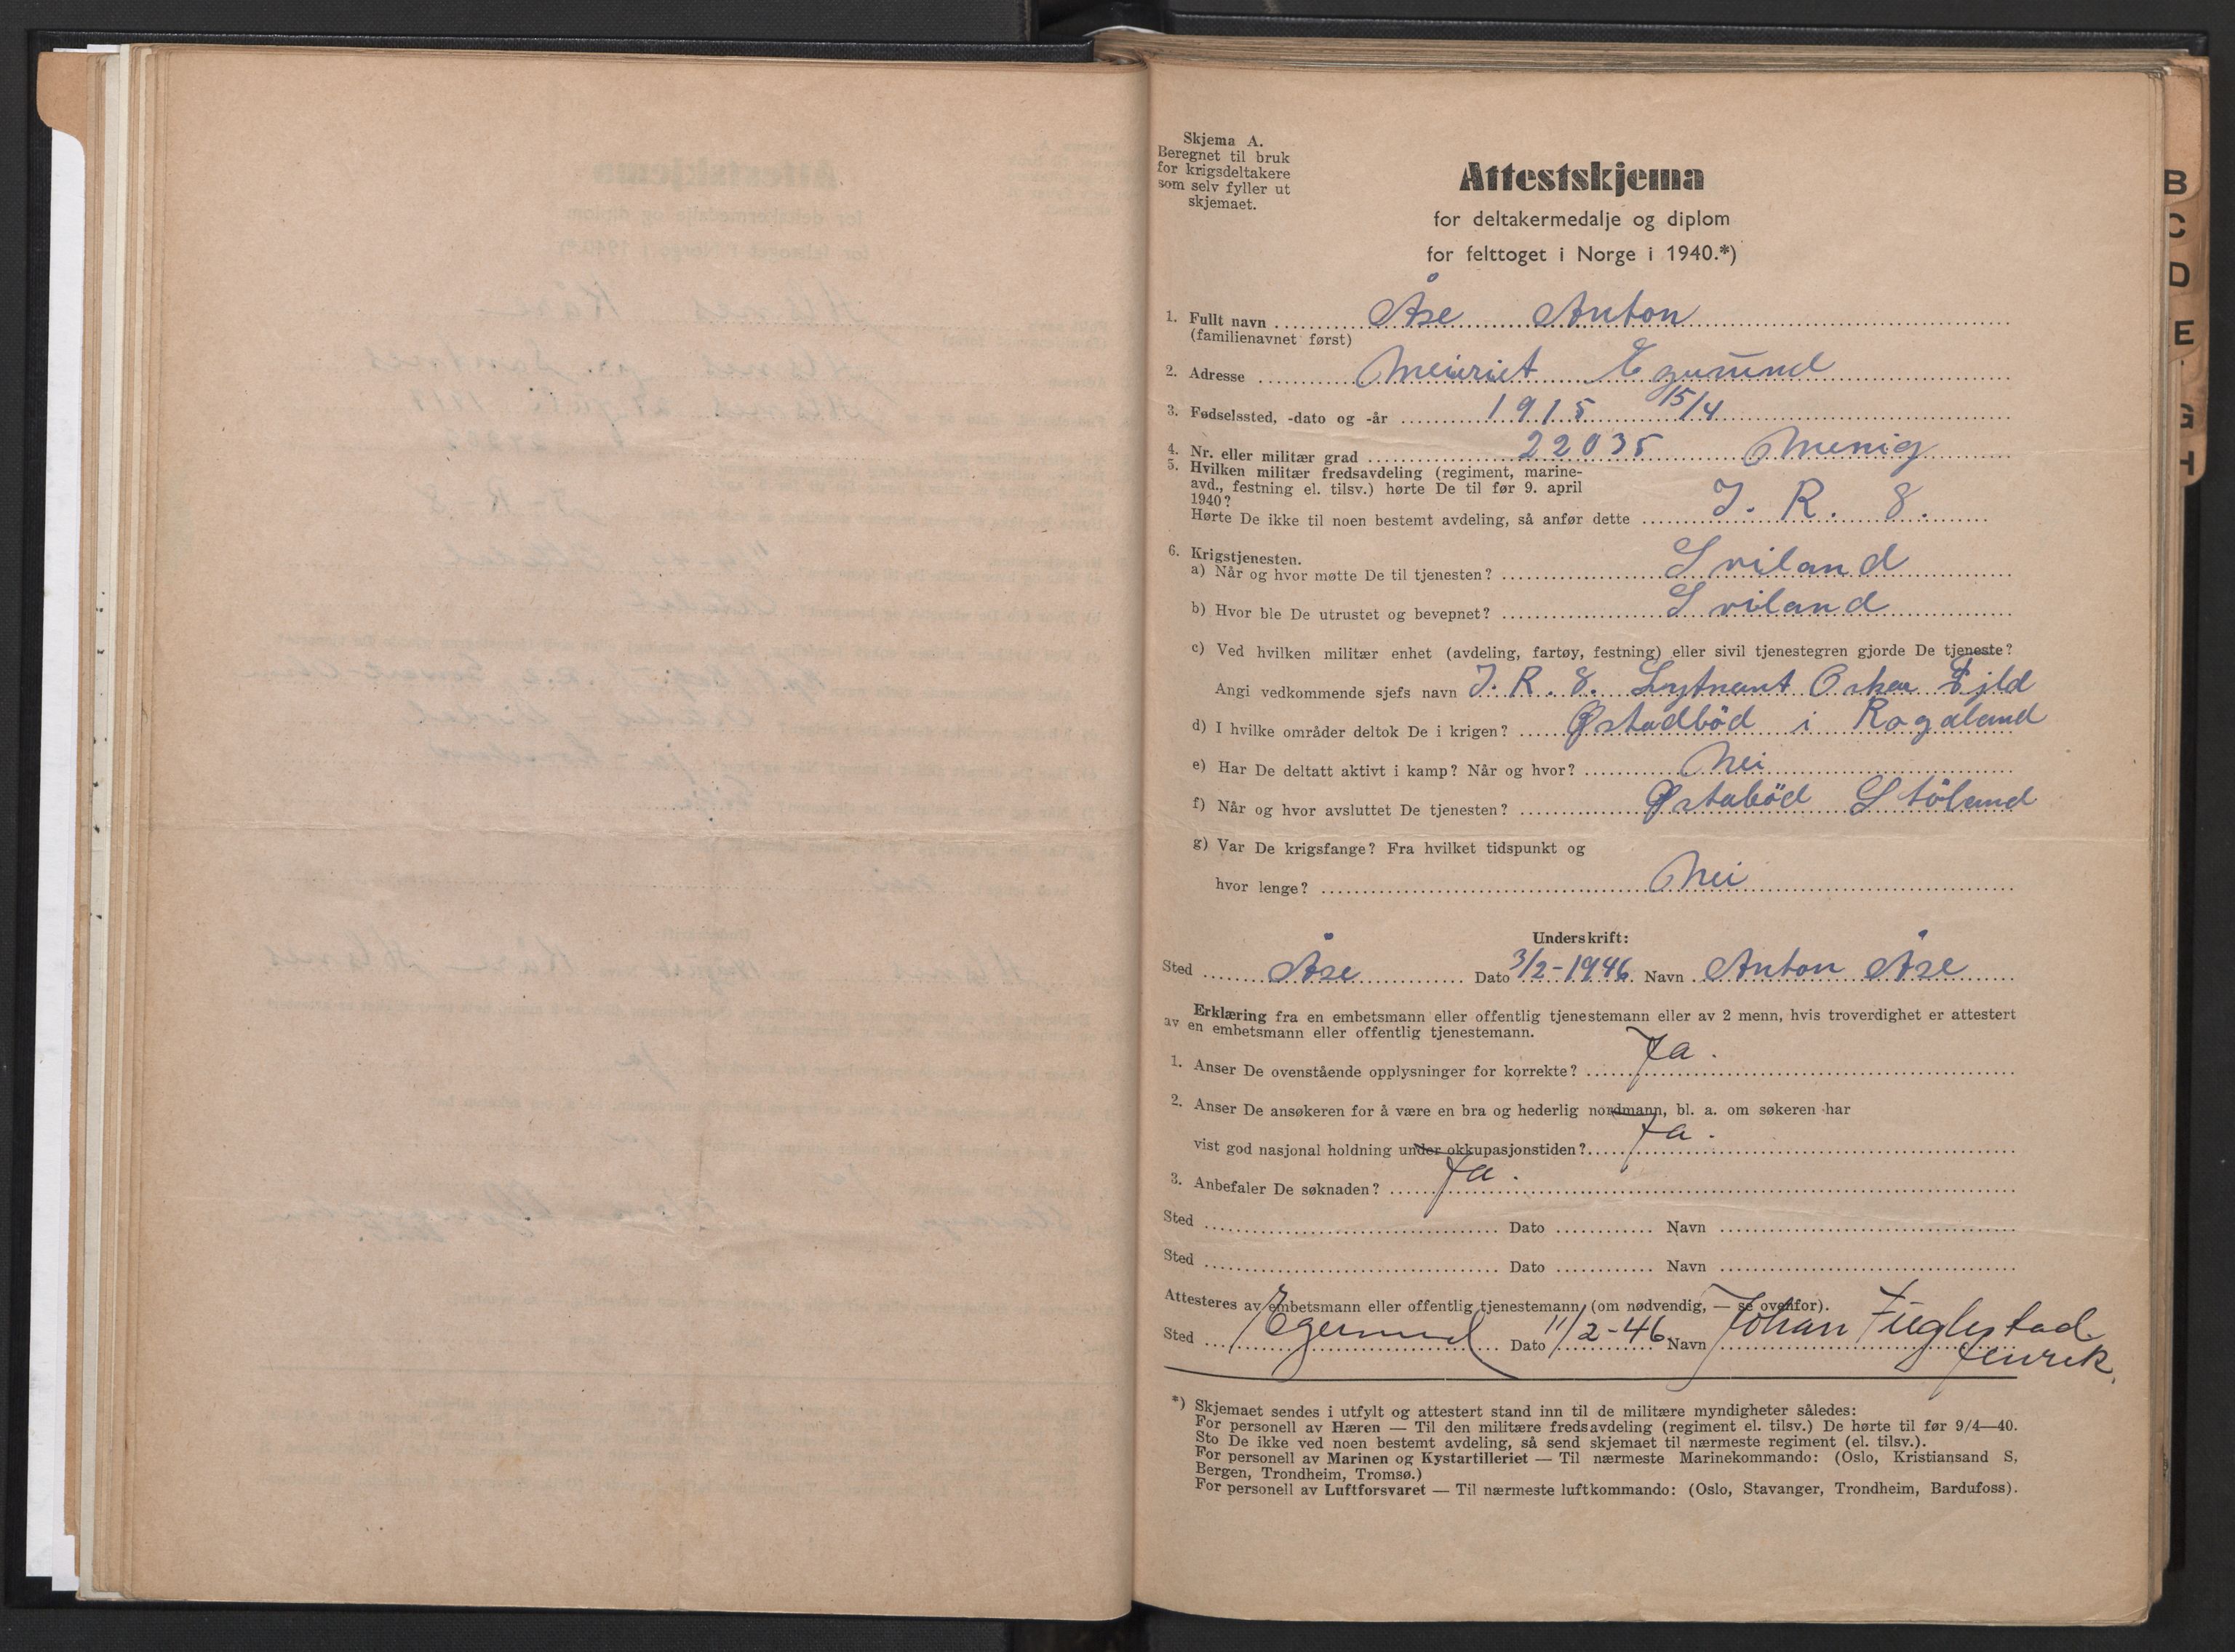 Skjema A.
Beregnet til bruk
for krigsdeltakere
som selv fyller ut
skjemaet.
Attestskjema
for deltakermedalje og diplom
for felttoget i Norge i 1940.*)
1. Fullt navn Åse Anton
(familienavnet først)
2. Adresse Meieriet Egersund
3. Fødselssted, -dato og -år 1915 15/4
4. Nr. eller militær grad 22035 Menig
5. Hvilken militær fredsavdeling (regiment, marine-
avd., festning el. tilsv.) hørte De til før 9. april
1940?
Hørte De ikke til noen bestemt avdeling, så anfør dette J. R. 8.
6. Krigstjenesten.
a) Når og hvor møtte De til tjenesten? Sviland
b) Hvor ble De utrustet og bevepnet? Sviland
c) Ved hvilken militær enhet (avdeling, fartøy, festning) eller sivil tjenestegren gjorde De tjeneste?
Angi vedkommende sjefs navn J. R. 8. Løytnant Oskar
d) I hvilke områder deltok De i krigen? Østadbød i Rogaland
e) Har De deltatt aktivt i kamp? Når og hvor? Nei
f) Når og hvor avsluttet De tjenesten? Østabød Støland
g) Var De krigsfange? Fra hvilket tidspunkt og
hvor lenge? Nei
Underskrift:
Sted Åse Dato 3/2-1946. Navn Anton Åse
Erklæring fra en embetsmann eller offentlig tjenestemann eller av 2 menn, hvis troverdighet er attestert
av en embetsmann eller offentlig tjenestemann.
1. Anser De ovenstående opplysninger for korrekte? Ja.
2. Anser De ansøkeren for å være en bra og hederlig nordmann, bl. a. om søkeren har
vist god nasjonal holdning under okkupasjonstiden? Ja.
3. Anbefaler De søknaden? Ja.
Sted Dato Navn
Sted Dato Navn
Attesteres av embetsmann eller offentlig tjenestemann (om nødvendig, — se ovenfor).
Sted Egersund Dato 11/2-46. Navn Johan Fuglestad
*) Skjemaet sendes i utfylt og attestert stand inn til de militære myndigheter således:
For personell av Hæren — Til den militære fredsavdeling (regiment el. tilsv.) De hørte til før 9/4—40.
Sto De ikke ved noen bestemt avdeling, så send skjemaet til nærmeste regiment (el. tilsv.).
For personell av Marinen og Kystartilleriet — Til nærmeste Marinekommando: (Oslo, Kristiansand S,
Bergen, Trondheim, Tromsø.)
For personell av Luftforsvaret — Til nærmeste luftkommando: (Oslo, Stavanger, Trondheim, Bardufoss).
B
C
D
E
G
H